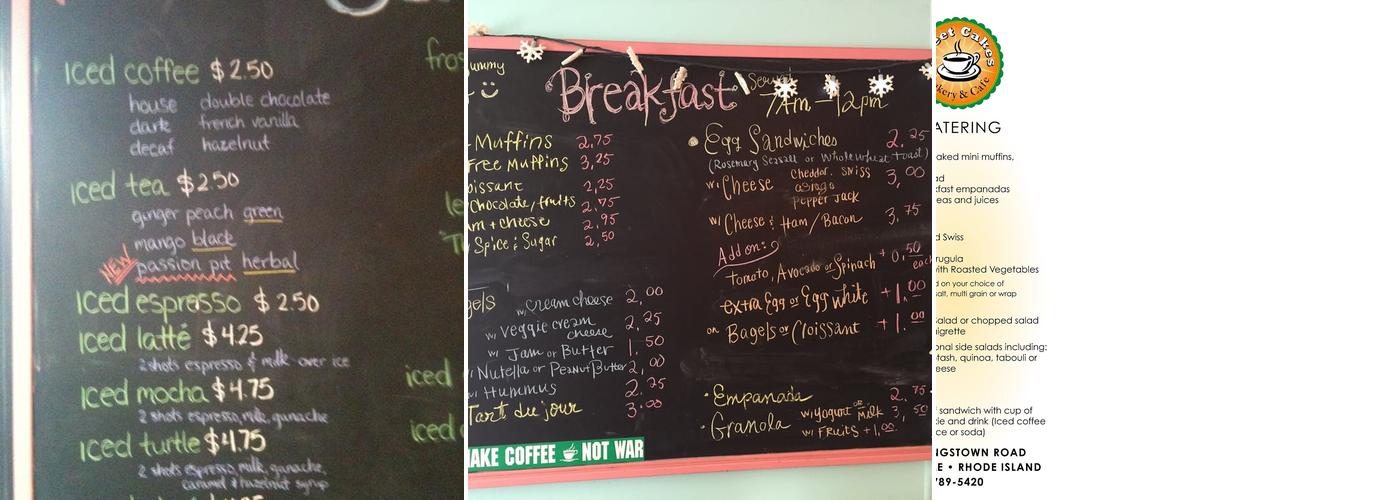 Iced coffee $2.50
house double chocolate
dark french vanilla
decaf hazelnut
Iced tea $2.50
ginger peach green
mango black
NEW
passion pit herbal
Iced espresso $2.50
Iced latté $4.25
2 shots espresso & milk over ice
Iced mocha $4.75
2 shots espresso, milk, ganache
Iced turtle $4.75
2 shots espresso, milk, ganache,
caramel & hazelnut syrup
fros
iced
iced
ummy
Breakfast
Served
7Am-12pm
Muffins 2,75
Free Muffins 3,25
oissant 2,25
Chocolate, fruits 2,75
am + cheese 2,95
w/ Spice & Sugar 2,50
gels w/ cream cheese 2,00
w/ veggie cream cheese 2,25
w/ Jam or Butter 1.50
w/ Nutella or Peanut Butter 2,00
w/ Hummus 2.25
Tart du jour 3.00
AKE COFFEE NOT WAR
Egg Sandwiches 2.25
(Rosemary Seasalt or Whole wheat toast)
w/ Cheese Cheddar. Swiss 3,00
asiago
pepper Jack
w/ Cheese & Ham/Bacon 3,75
Add on:
tomato, Avocado or Spinach +0,50
each
extra Egg or Egg white +1,00
on Bagels or Croissant +1.00
Empanada 2.75
Granola w/ Yogurt or Milk 3,50
w/ Fruits +1,00
eet Cakes
kery & Cafe
ATERING
aked mini muffins,
ad
kfast empanadas
eas and juices
d Swiss
rugula
with Roasted Vegetables
d on your choice of
salt, multi grain or wrap
salad or chopped salad
aigrette
onal side salads including:
tash, quinoa, tabouli or
eese
f sandwich with cup of
kie and drink (Iced coffee
ce or soda)
NGSTOWN ROAD
E • RHODE ISLAND
789-5420